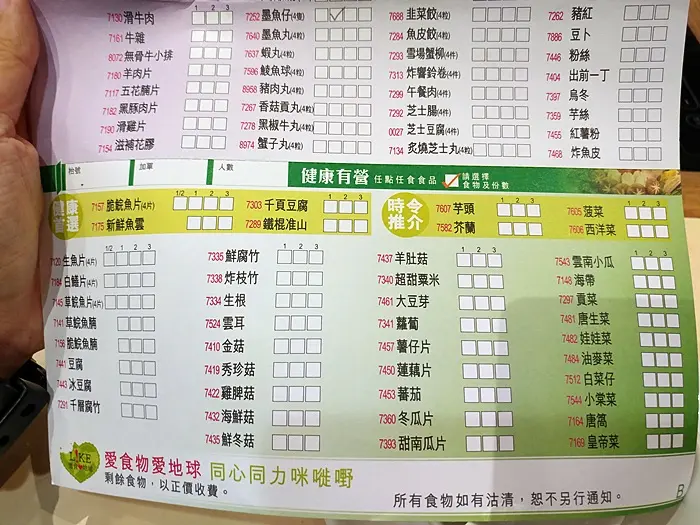 1 2 3
7130 滑牛肉
7161 牛雜
8072 無骨牛小排
7180 羊肉片
7117 五花腩片
7182 黑豚肉片
7190 滑雞片
7154 滋補花膠
7252 墨魚仔(4隻)
7640 墨魚丸(4粒)
7637 蝦丸(4粒)
7596 鯪魚球(4粒)
8958 豬肉丸(4粒)
7267 香菇貢丸(4粒)
7278 黑椒牛丸(4粒)
8974 蟹子丸(4粒)
7688 韭菜餃(4粒)
7284 魚皮餃(4粒)
7293 雪場蟹柳(4件)
7313 炸響鈴卷(4件)
7299 午餐肉(4件)
7292 芝士腸(4件)
0027 芝士豆腐(4件)
7134 炙燒芝士丸(4粒)
7262 豬紅
7886 豆卜
7446 粉絲
7404 出前一丁
7397 烏冬
7359 芋絲
7455 紅薯粉
7468 炸魚皮
枱號 加單 人數
健康有營 任點任食食品 請選擇食物及份數
健康首選
1/2 1 2 3
7157 脆鯇魚片(4片)
7175 新鮮魚雲
1 2 3
7303 千頁豆腐
7289 鐵棍准山
時令推介
1 2 3
7607 芋頭
7582 芥蘭
1 2 3
7605 菠菜
7606 西洋菜
1/2 1 2 3
7120 生魚片(4片)
7184 白鱔片(4片)
7145 草鯇魚片(4片)
7141 草鯇魚腩
7156 脆鯇魚腩
7441 豆腐
7443 冰豆腐
7291 千層腐竹
1 2 3
7335 鮮腐竹
7338 炸枝竹
7334 生根
7524 雲耳
7410 金菇
7419 秀珍菇
7422 雞脾菇
7432 海鮮菇
7435 鮮冬菇
1 2 3
7437 羊肚菇
7340 超甜粟米
7461 大豆芽
7341 蘿蔔
7457 薯仔片
7450 蓮藕片
7453 蕃茄
7360 冬瓜片
7393 甜南瓜片
1 2 3
7543 雲南小瓜
7148 海帶
7297 貢菜
7481 唐生菜
7482 娃娃菜
7484 油麥菜
7512 白菜仔
7544 小棠菜
7164 唐蒿
7169 皇帝菜
LIKE
愛食物愛地球 同心同力咪嘥嘢
剩餘食物，以正價收費。
所有食物如有沽清，恕不另行通知。
B